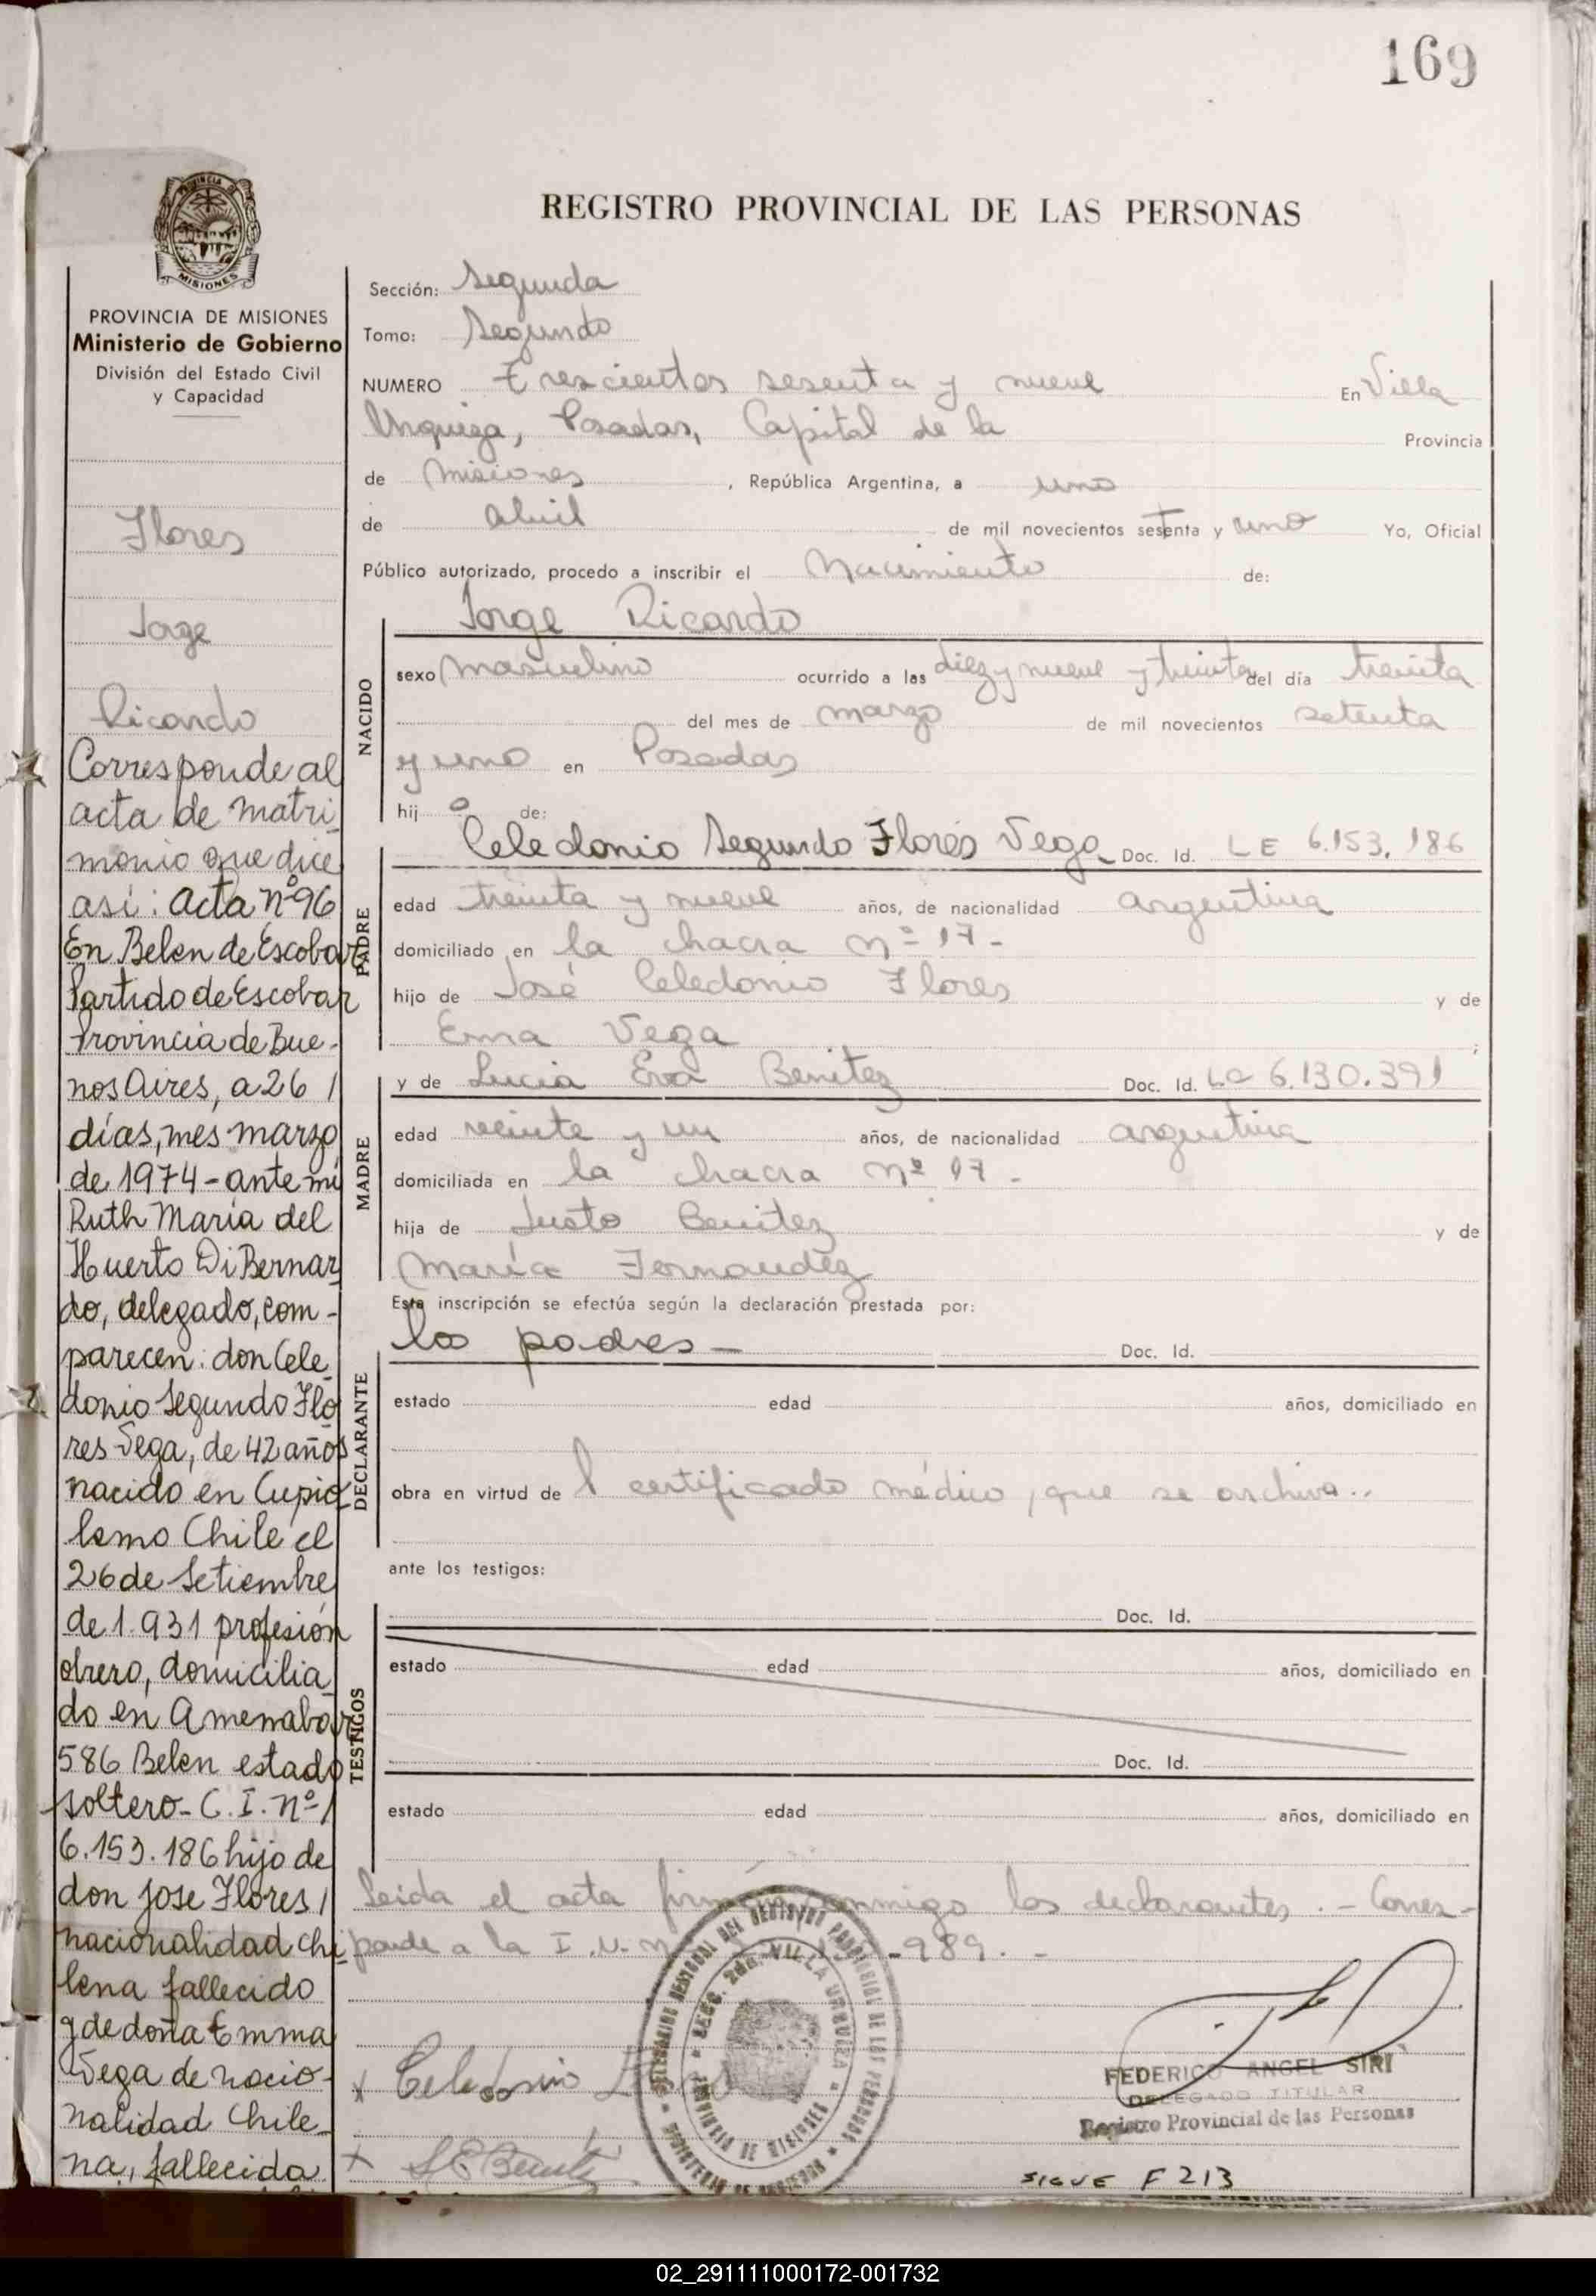 169
PROVINCIA DE MISIONES
REGISTRO PROVINCIAL DE LAS PERSONAS
PROVINCIA DE MISIONES
Ministerio de Gobierno
División del Estado Civil
y Capacidad
Flores
Jorge
Ricardo
Corresponde al
acta de matri
monio que dice
así: acta nº96
En Belen de Escobar
Partido de Escobar
Provincia de Bue-
nos Aires, a 26 /
días, mes marzo
de 1974 - ante mi
Ruth María del
Huerto Di Bernar
do, delegado, com-
parecen: don Cele
donio Segundo Flo
res Vega, de 42 años
nacido en
Chile el
26 de Setiembre
de 1.931 profesión
obrero, domicilia
do en Amenabar
586 Belen estado
soltero - C. I. nº /
6.153.186 hijo de
don Jose Flores /
nacionalidad chi
lena fallecido
y de doña Emma
Vega de nacio-
nalidad Chile
na, fallecida
Sección: Segunda
Tomo: Segundo
NUMERO Trescientos sesenta y nueve En Villa
Urquiza, Posadas, Capital de la Provincia
de Misiones, República Argentina, a uno
de abril de mil novecientos setenta y uno Yo, Oficial
Público autorizado, procedo a inscribir el Nacimiento de:
Jorge Ricardo
NACIDO
sexo masculino ocurrido a las diez y nueve y treinta del día treinta
del mes de marzo de mil novecientos setenta
y uno en Posadas
hijo de:
Celedonio Segundo Flores Vega Doc. Id. LE 6.153.186
PADRE
edad treinta y nueve años, de nacionalidad argentina
domiciliado en la chacra nº 17-
hijo de José Celedonio Flores y de
Ema Vega;
y de Lucia Eva Benitez Doc. Id. LC 6.130.391
MADRE
edad veinte y un años, de nacionalidad argentina
domiciliada en la chacra nº 17-
hija de Justo Benitez y de
María Fernandez
Esta inscripción se efectúa según la declaración prestada por:
los padres - Doc. Id.
DECLARANTE
estado edad años, domiciliado en
obra en virtud del certificado médico, que se archiva..
ante los testigos:
Doc. Id.
TESTIGOS
estado edad años, domiciliado en
Doc. Id.
estado edad años, domiciliado en
Leida el acta firman conmigo los declarantes. - Corres-
ponde a la I.U.N. -989. -
SECC. 2da. VILLA URQUIZA
PROVINCIA DE MISIONES
x Celedonio
x L E Benitez
FEDERICO ANGEL SIRI
DELEGADO TITULAR
Registro Provincial de las Personas
SIGUE F 213
02_291111000172-001732